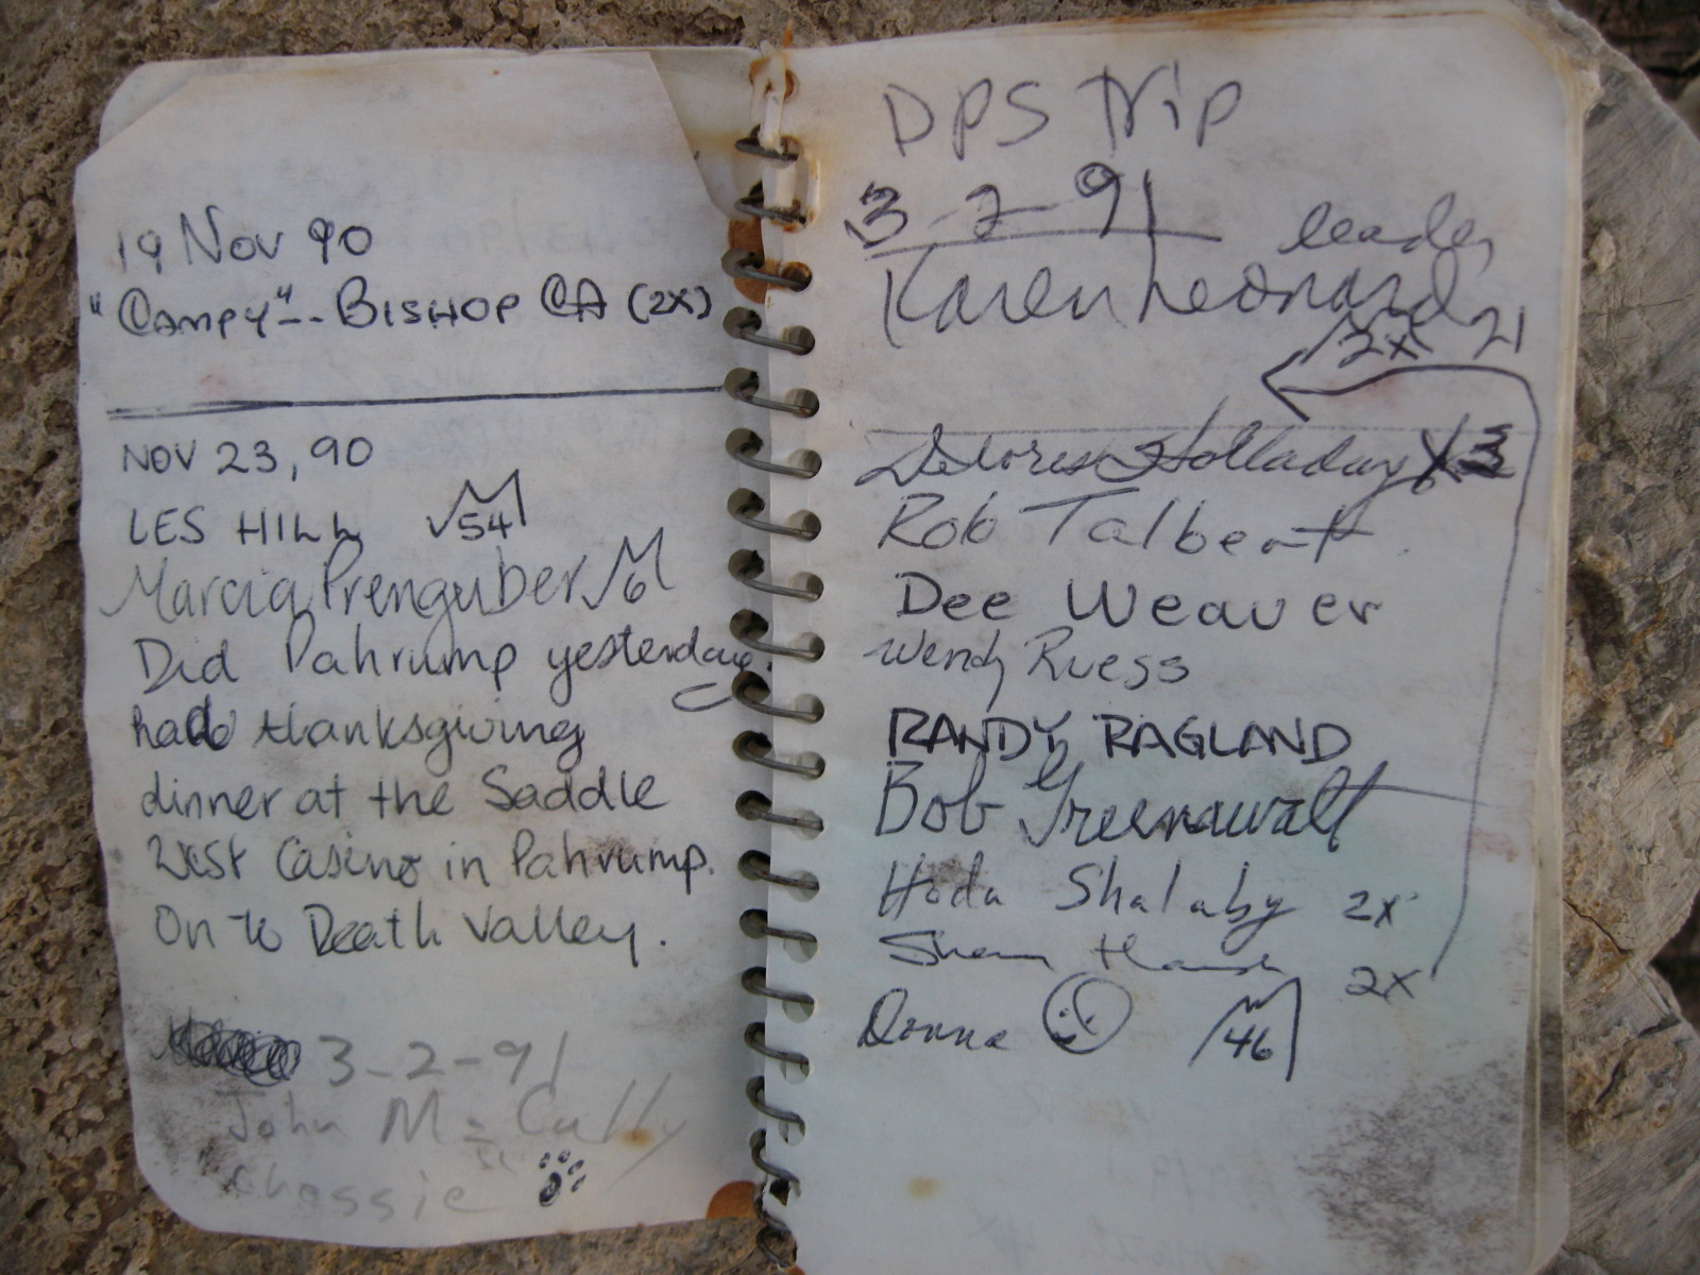 19 Nov 90
"Campy" -- Bishop CA (2x)
NOV 23, 90
LES HILL 54
Marcia Prenguber 6
Did Pahrump yesterday.
had thanksgiving
dinner at the Saddle
West Casino in Pahrump.
On to Death Valley.
3-2-91
John McCully
DPS trip
3-2-91
leader
Karen Leonard
2x 21
Delores Holladay X3
Rob Talbert
Dee Weaver
Wendy Ruess
RANDY RAGLAND
Bob Greenawalt
Hoda Shalaby 2x
2x
Donna 46